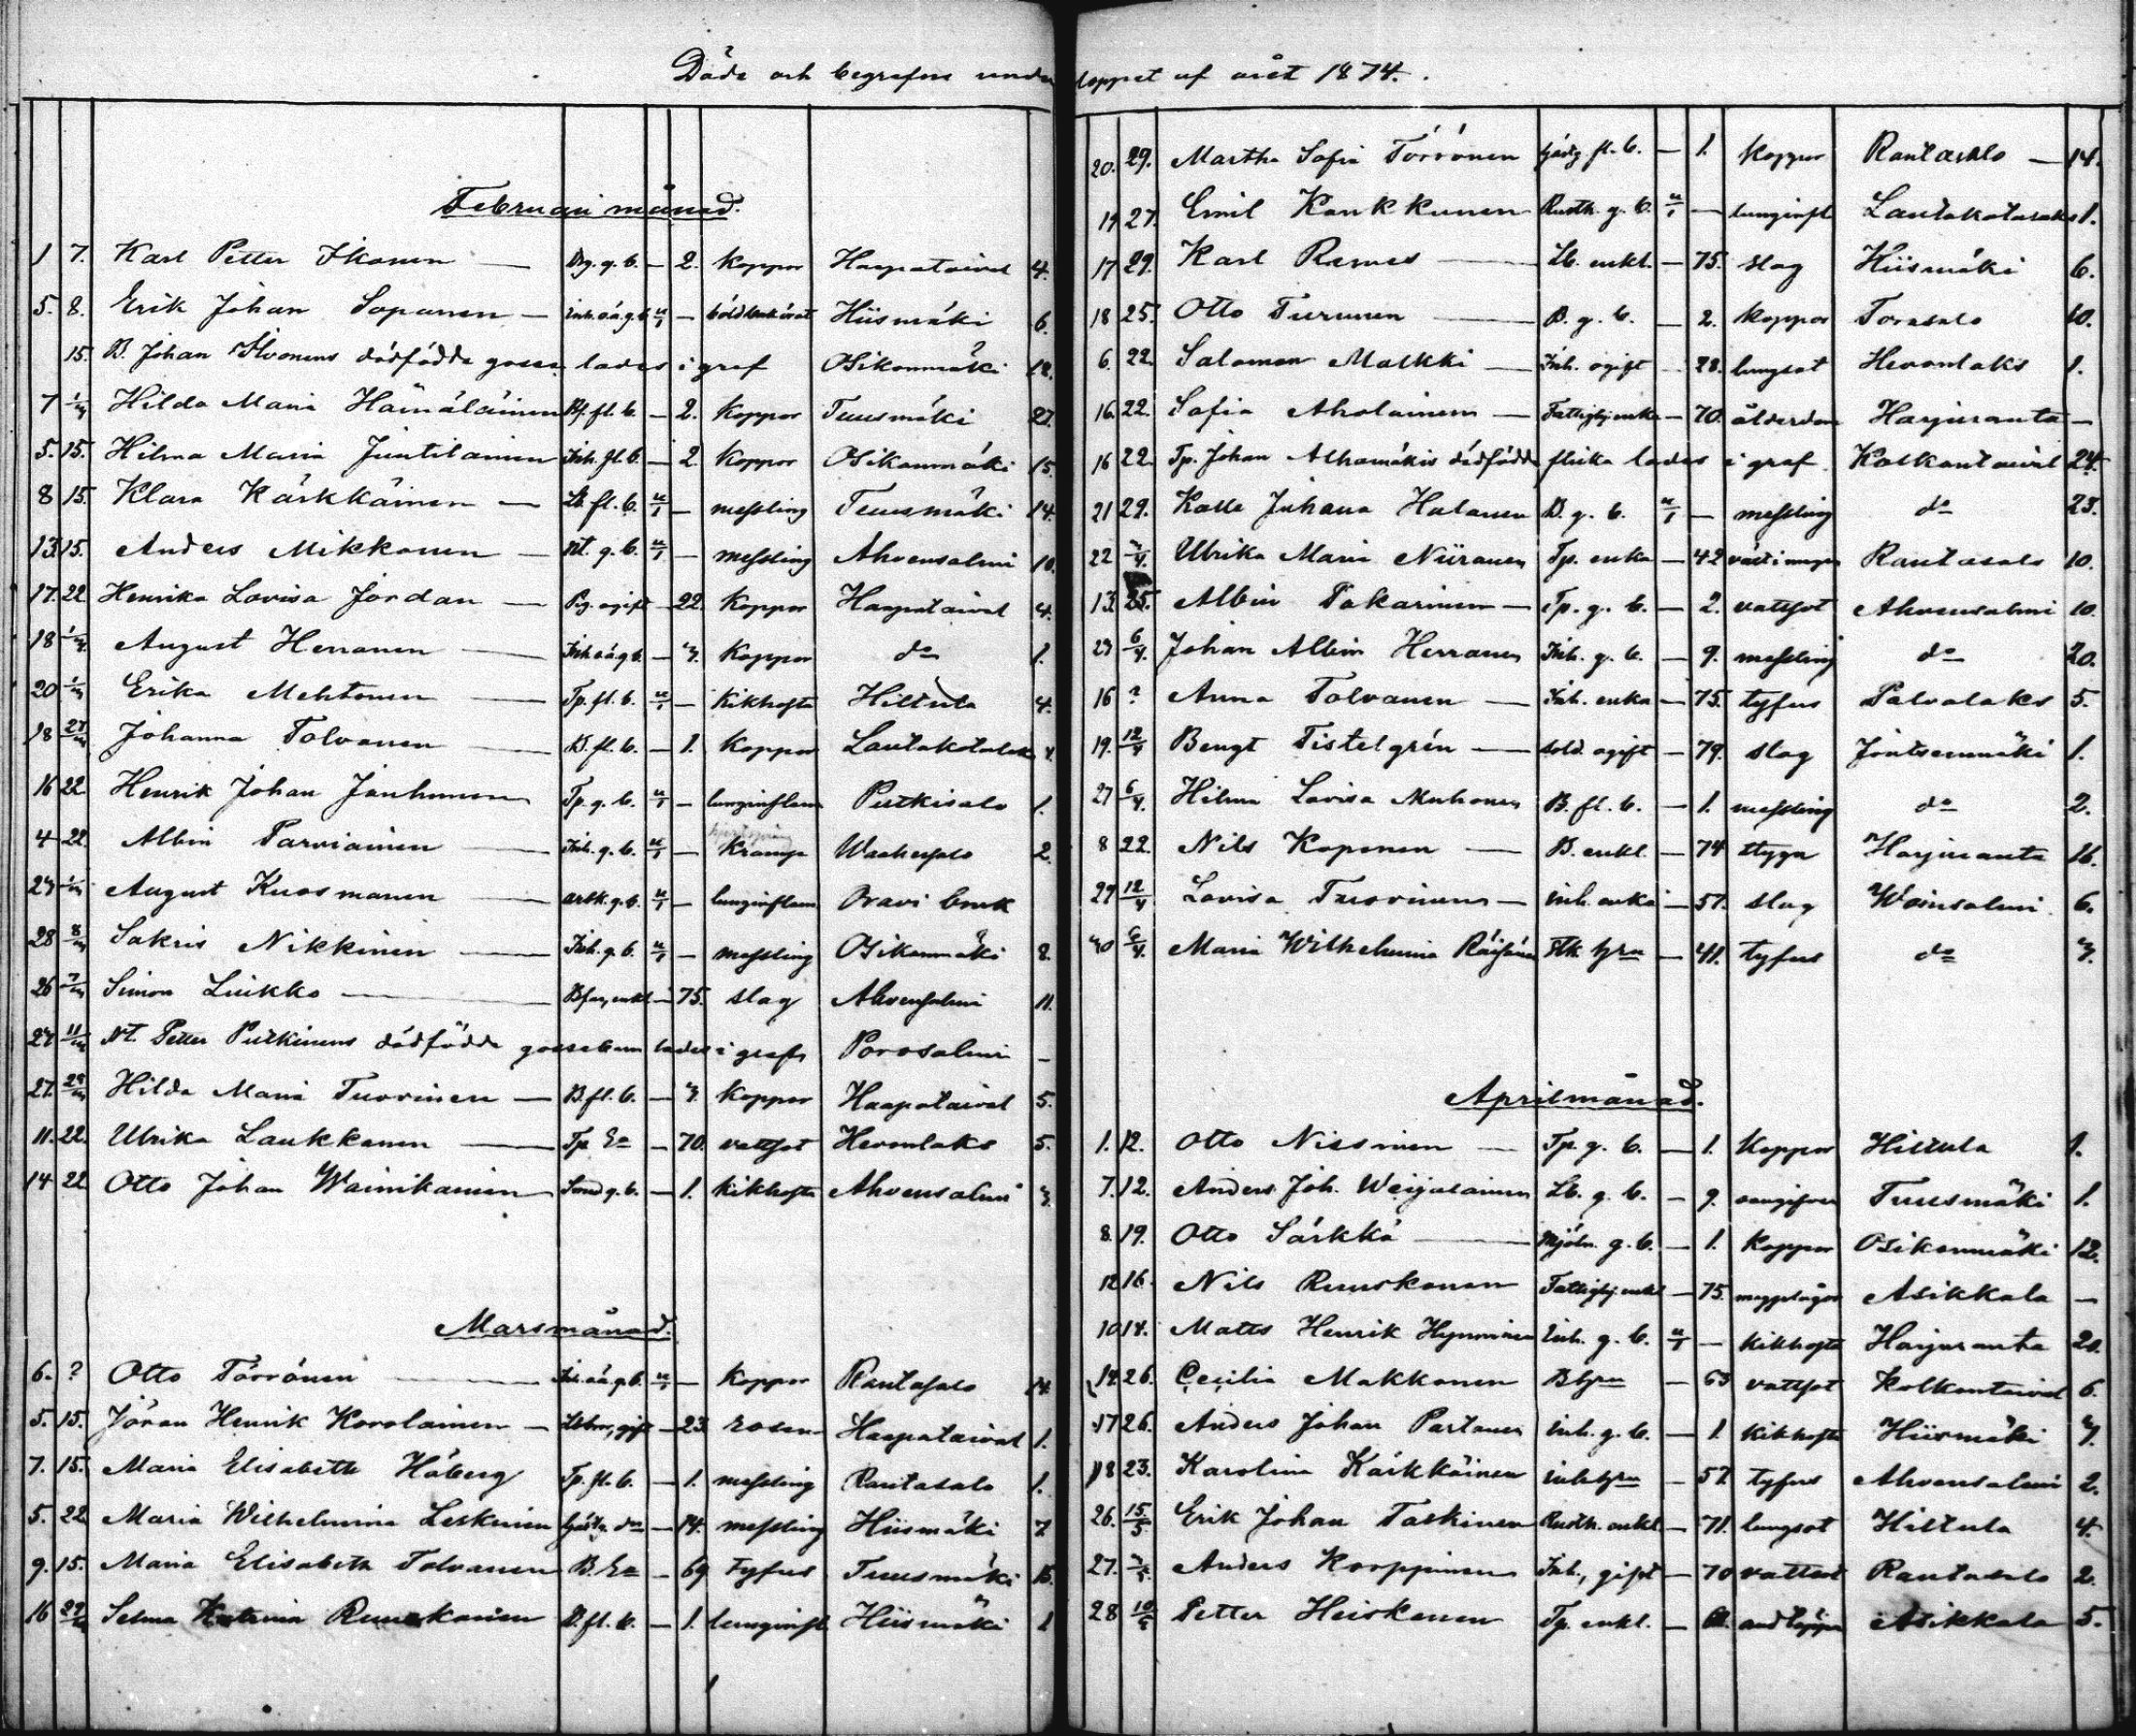 Döde och begrafne under loppet af året 1874.
Februari månad.
1 7. Karl Petter Ikonen — g. b. — 2. koppor Haapataival 4.
5. 8. Erik Johan Sopanen — Inh. oä. g. b. u/1 — Hiismäki 6.
15. B. Johan Ikonens dödfödda gosse lades i graf Osikonmäki 12.
7 1/3 Hilda Maria Hämäläinen fl. b. — 2. koppor Tuusmäki 27.
5. 15. Hilma Maria Juntilainen Inh. fl. b. — 2. koppor Osikonmäki 15
8 15. Klara Kärkkäinen — Lb. fl. b. u/1 — messling Tuusmäki 14.
13. 15. Anders Mikkonen — Nt. g. b. u/1 — messling Ahvensalmi 10.
17. 22. Henrika Lovisa Jordan — Pig. ogift — 22. koppor Haapataival 4.
18 1/3. August Herranen — Inh. oä g b. — 3. koppor do 1.
20 1/3 Erika Mehtonen — Tp. fl. b. u/1 — kikhosta Hiltula 4.
18 27/3 Johanna Tolvanen — B. fl. b. — 1. koppor Lautakotalaks
16 22. Henrik Johan Janhunen Tp. g. b. u/1 — lunginflam Putkisalo 1.
4 22. Albin Parviainen — Inh. g. b. u/1 — kramp 2.
23 1/3 August Kuosmanen — arbk. g. b. u/1 — lunginflam. Oravi bruk
28 8/3 Sakris Nikkinen — Inh. g. b. u/1 — messling Osikonmäki 8.
26 Simon Liukko — enkl. — 75. slag Ahvensalmi 11.
24 11/3 Nt. Petter Putkinens dödfödda gossebarn lades i graf Porosalmi —
27. 29/3 Hilda Maria Tuovinen — B. fl. b. — 3. koppor Haapataival 5.
11. 22. Ulrika Laukkanen — Tp. Ea — 70. vattsot Hevonlaks 5.
14 22 Otto Johan Wainikainen g. b. — 1. kikhosta Ahvensalmi 3.
Marsmånad.
6. ? Otto Törrönen — Inh. oä g. b. u/1 — koppor Rantasalo 14.
5. 15. Jöran Henrik Karolainen — gift — 23. rosen Haapataival 1.
7. 15. Maria Elisabeth Håberg Tp. fl. b. — 1. messling Rantasalo 1.
5. 22 Maria Wilhelmina Leskinen — 14. messling Hiismäki 7
9. 15. Maria Elisabeth Tolvanen B. Ea — 69 tyfus Tuusmäki 15.
16 29/3 Selma Katarina Ruuskanen B. fl. b. — 1. lunginfl. Hiismäki 1
20. 29. Martha Sofia Törrönen fl. b. — 1. koppor Rantasalo — 14.
19 27. Emil Kaukkunen Rusth. g. b. u/1 — lunginfl Lautakotalaks 1.
17 29. Karl Rames — Lb. enkl. — 75. slag Hiismäki 6.
18 25. Otto Turunen — B. g. b. — 2. koppor Torasalo 10.
6. 22. Salomon Malkki — Inh. ogift — 28. lungsot Hevonlaks 1.
16. 22. Sofia Aholainen — Fattighj enka — 70. ålderdom Harjuranta —
16 22. Tp. Johan Alhamäkis dödfödda flicka lades i graf. Kolkontaival 24.
21 29. Kalle Juhana Halanen B. g. b. u/1 — messling do 23.
22 3/4. Ulrika Maria Niiranen Tp. enka — 42 Rantasalo 10.
13. 25. Albin Pakarinen — Tp. g. b. — 2. vattsot Ahvensalmi 10.
23 6/4. Johan Albin Herranen Inh. g. b. — 9. messling do 20.
16 ? Anna Tolvanen — Inh. enka — 75. tyfus Palvalaks 5.
19. 12/4 Bengt Tistelgrén — sold. ogift — 79. slag Joutsenmäki 1.
27 6/4. Hilma Lovisa Muhonen B. fl. b. — 1. messling do 2.
8 22. Nils Koponen — B. enkl. — 74 stygn Harjuranta 16.
29 12/4 Lovisa Tuovinen — inh. enka — 57. slag Wäinsalmi 6.
30 6/4. Maria Wilhelmina Räisänen hu — 41. tyfus do 3.
Aprilmånad.
1. 12. Otto Nissinen — Tp. g. b. — 1. koppor Hiltula 1.
7. 12. Anders Joh. Weijalainen Lb. g. b. — 9. Tuusmäki 1.
8. 19. Otto Särkkä — Mjöln. g. b. — 1. koppor Osikonmäki 12.
12 16. Nils Ruuskanen Fattighj. enkl — 75. Asikkala —
10 14. Matts Henrik Hynninen Inh. g. b. u/1 — kikhosta Harjuranta 20.
14. 26. Cecilia Makkonen — 63 vattsot Kolkontaival 6.
17 26. Anders Johan Partanen inh. g. b. — 1 kikhosta Hiismäki 3.
18 23. Karolina Kärkkäinen — 57. tyfus Ahvensalmi 2.
26. 15/5 Erik Johan Taskinen Rusth. enkl — 71. lungsot Hiltula 4.
27. 3/5. Anders Korppinen Inh., gift — 70 vattsot Rantasalo 2.
28 10/5 Petter Heiskanen Tp. enkl. — Asikkala 5.